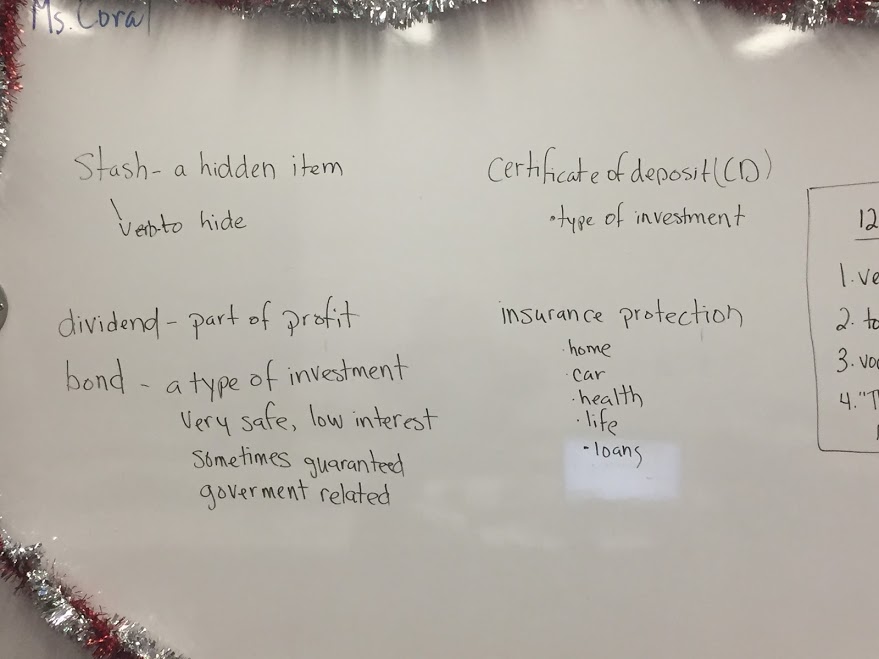 Ms. Coral
Stash - a hidden item
verb-to hide
dividend - part of profit
bond - a type of investment
very safe, low interest
sometimes guaranteed
goverment related
Certificate of deposit (CD)
·type of investment
insurance protection
·home
·car
·health
·life
-loans
12
1.
2.
3.
4. "T